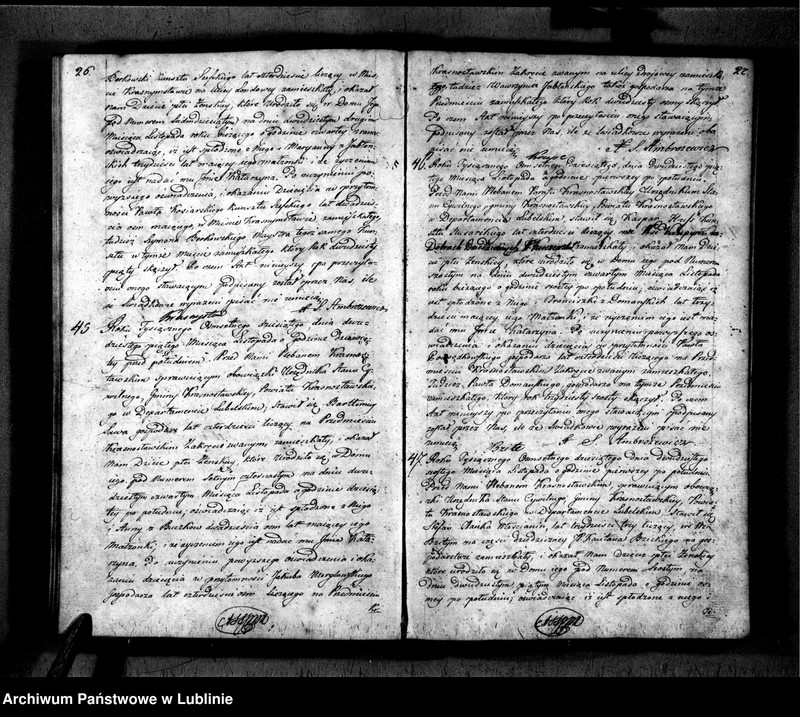 26.
Borkowski kunsztu Szefskiego lat czterdzieści liczący w Mieś-
cie Krasnymstawie na ulicy zamieszkały, i okazał
nam Dziecie płci Żeńskiej, które urodziło się w Domu
pod Numerem na dniu dwudziestym drugim
Miesiąca Listopada roku bieżącego o godzinie czwartey zrana
oświadczając, iż jest spłodzone z niego i Maryanny z
lat trzydzieści mającey iego małżonki i że życzeniem
iego jest nadać mu Imie Katarzyna. Po uczynieniu po-
wyższego oświadczenia i okazaniu Dziecięcia w przytom-
ności Pawła Kosiarskiego kunsztu Szefskiego lat dwadzieś-
cia osm mającego, w Mieście Krasnymstawie zamieszkałego
tudzież Szymona Borkowskiego Maystra tegoż samego kun-
sztu w tymże mieście zamieszkałego który rok dwudziesty
piąty skączył. Po czem Akt ninieyszy po przeczyta-
niu onego stawaiącym podpisany został przez Nas, ile
że Świadkowie wyrazili pisać nie umieią
X S. Ambrożewicz
45
Roku Tysiącznego Osmsetnego dziesiątego dnia dwu-
dziestego piątego Miesiąca Listopada o godzinie dziewią-
tey przed południem. Przed Nami Plebanem Krasno-
stawskim sprawuiącym obowiązki Urzędnika Stanu Cy-
wilnego, Gminy Krasnostawskiey, Powiatu Krasnostawskie-
go w Departamencie Lubelskim, Stawił się Bartłomiey
Sawa gospodarz lat czterdzieści liczący, na Przedmieściu
Krasnostawskim Zakręcie zwanym, zamieszkały, i okazał
Nam Dziecie płci Żeńskiey, które urodziło się w Domu
iego pod Numerem Setnym na dniu dwu-
dziestym czwartym Miesiąca Listopada o godzinie dziesią-
tey po południu, oświadczając iż jest spłodzone z niego
i Anny z Burków dwadzieścia osm lat maiącey iego
Małżonki, i że życzeniem iego jest nadać mu Imie Kata-
rzyna. Po uczynieniu powyższego oświadczenia i oka-
zaniu dziecięcia w przytomności Jakuba
Gospodarza lat czterdzieści osm liczącego na Przedmieściu
27.
Krasnostawskim Zakręcie zwanym na ulicy zamieszka-
łego, tudzież Wawrzyńca Jabłońskiego także gospodarza na tymże
Przedmieściu zamieszkałego który rok dwudziesty osmy skączył
Po czem Akt ninieyszy po przeczytaniu onego stawaiącym
podpisany został przez Nas, ile że Świadkowie wyrazili
pisać nie umieią
X S. Ambrożewicz
46.
Roku Tysiącznego Osmsetnego Dziesiątego, dnia Dwudziestego pią-
tego Miesiąca Listopada o godzinie pierwszey po południu
Przed Nami Plebanem Krasnostawskim Urzędnikiem Sta-
nu Cywilnego, Gminy Krasnostawskiey Powiatu Krasnostawskiego
w Departamencie Lubelskim stawił się Kacper kun-
sztu lat czterdzieści liczący
zamieszkały, i okazał nam Dzie-
cie płci żeńskiey które urodziło się w Domu iego pod Numerem
na dniu dwudziestym czwartym Miesiąca Listopada
roku bieżącego o godzinie szostey po południu, oświadczaiąc iż
jest spłodzone z niego i Franciszki z Domańskich lat trzy-
dzieści maiącey iego Małżonki, i że życzeniem iego jest na-
dać mu Imie Katarzyna. Po uczynieniu powyższego oś-
wiadczenia i okazaniu dziecięcia w przytomności Pawła
gospodarza lat czterdzieści liczącego na Przed-
mieściu Krasnostawskim Zakręcie zwanym zamieszkałego,
Tudzież Pawła Domańskiego, gospodarza na tymże Przedmieściu
zamieszkałego, który rok trzydziesty szosty skączył. Po czem
Akt ninieyszy po przeczytaniu onego stawaiącym podpisany
został przez Nas, ile że Świadkowie wyrazili pisać nie
umieią
X S. Ambrożewicz
47.
Roku Tysiącznego Osmsetnego dziesiątego dnia dwudziestego
szostego Miesiąca Listopada o godzinie pierwszey po południu
Przed Nami Plebanem Krasnostawskim, sprawuiącym obowią-
zki Urzędnika Stanu Cywilnego, Gminy Krasnostawskiey, Powia-
tu Krasnostawskiego w Departamencie Lubelskim, stawił się
Stefan Włościanin, lat trzydzieści trzy liczący, w Wsi
na części dziedziczney W. Kaietana na go-
spodarstwie zamieszkały, i okazał Nam dziecie płci Żeńskiey
które urodziło się w Domu iego pod Numerem Szostym na
Dniu dwudziestym piątym Miesiąca Listopada o godzinie
po południu, oświadczaiąc iż jest spłodzone z niego i
Archiwum Państwowe w Lublinie